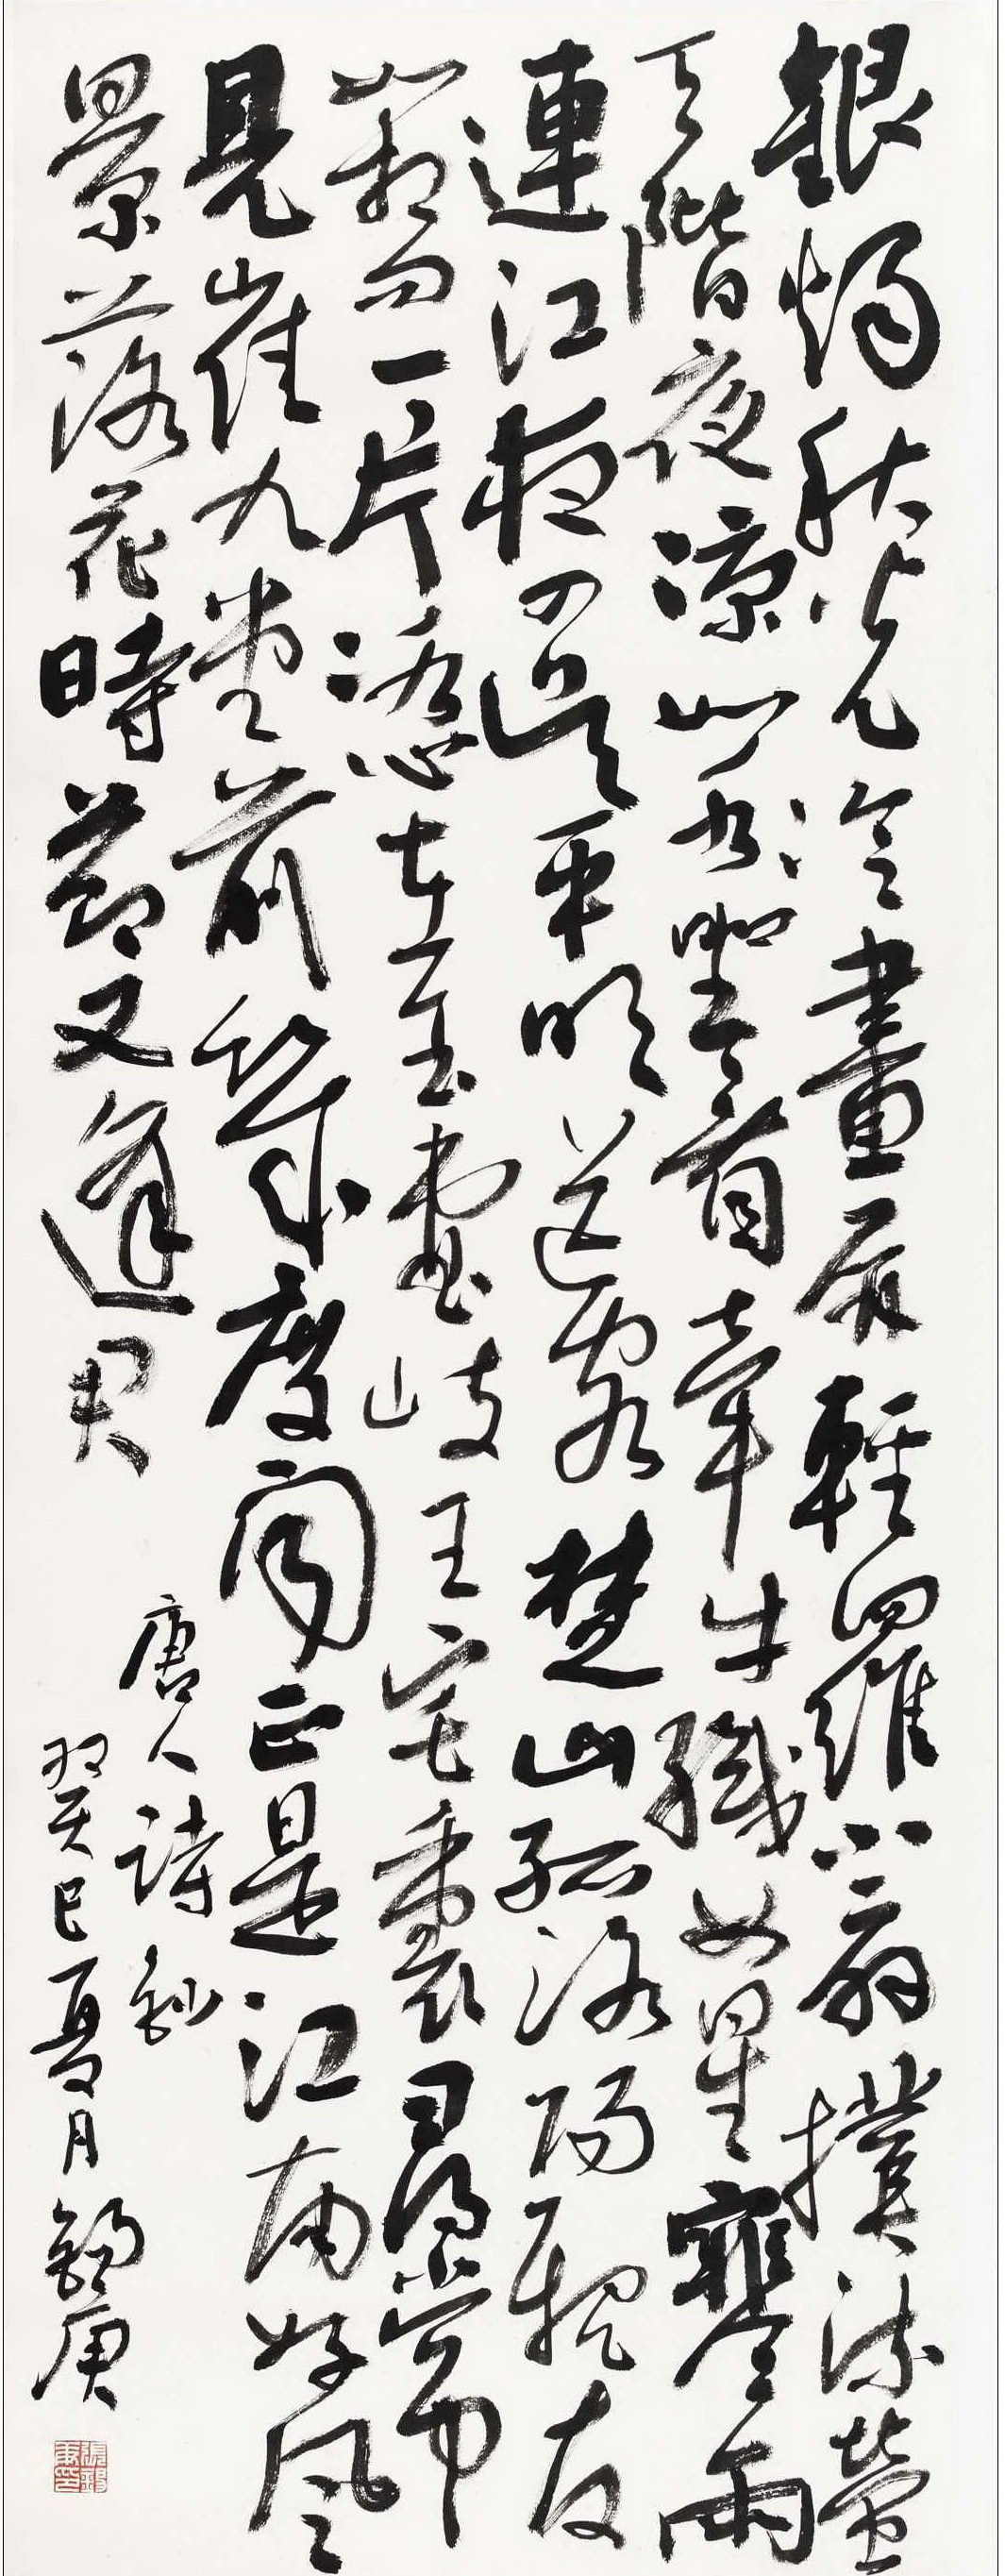 銀燭秋光冷畫屏輕羅小扇撲流螢
天階夜涼如水坐看牽牛織女星寒雨
連江夜入吳平明送客楚山孤洛陽親友
如相問一片冰心在玉壺岐王宅裏尋常
見崔九堂前幾度聞正是江南好風
景落花時節又逢君
唐人詩鈔
癸巳夏月錫庚
張錫庚印